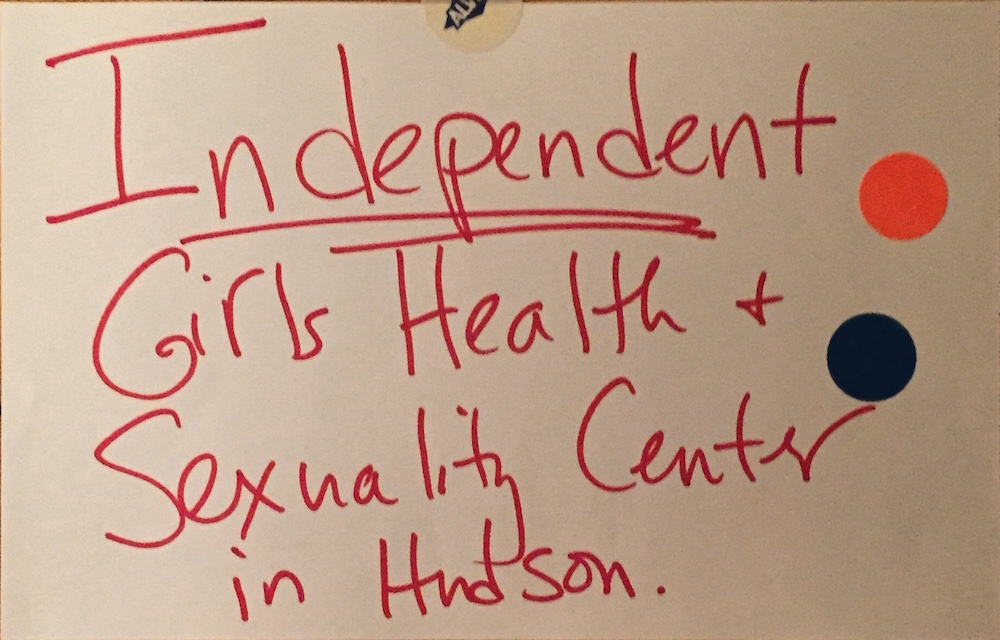 Independent
Girls Health +
Sexuality Center
in Hudson.